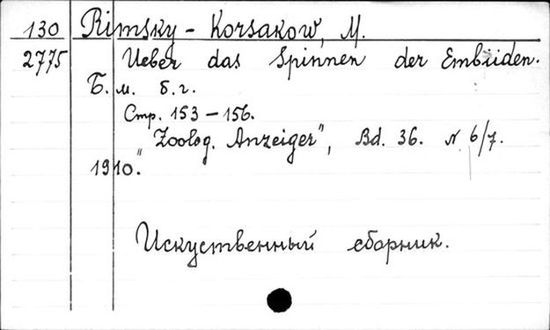 130 Rimsky - Korsakow, M.
2775 Ueber das Spinnen der Embiiden.
Б. м. б. г.
Стр. 153 – 156.
"Zoolog. Anzeiger", Bd. 36. N 6/7.
1910.
Искуственный сборник.